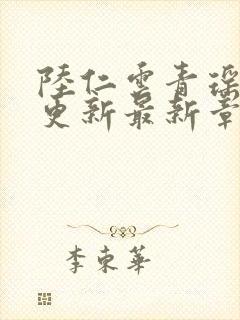 陸仁雲青瑶
更新最新章
李東華